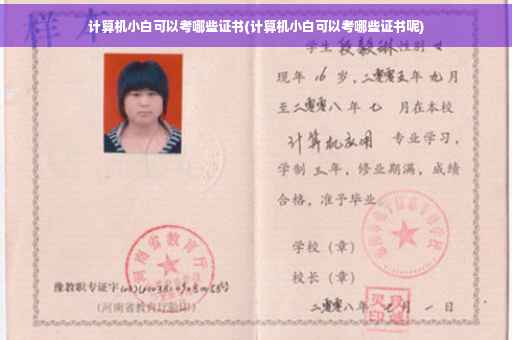 计算机小白可以考哪些证书(计算机小白可以考哪些证书呢)
样本
学生 段毅琳 性别 女
现年 16 岁，二零零五年 九月
至二零零八年 七 月在本校
计算机应用 专业学习，
学制 三 年，修业期满，成绩
合格，准予毕业
学校（章）
校长（章）
河南省教育厅
豫教职专证字
(河南省教育厅验印)
二零零八年 月 一 日